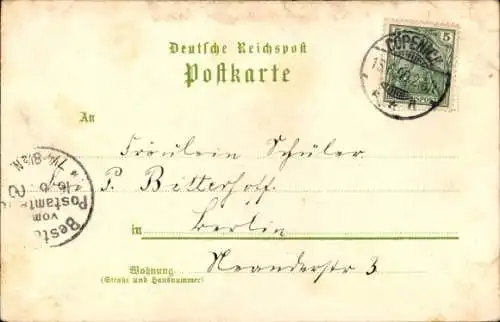 Deutsche Reichspost
Postkarte
5
CÖPENICK
An
Fräulein Schüler
P. Bitterhoff.
in Berlin
Wohnung Neanderstr 3
(Straße und Hausnummer)
Best.
vom
Postamt